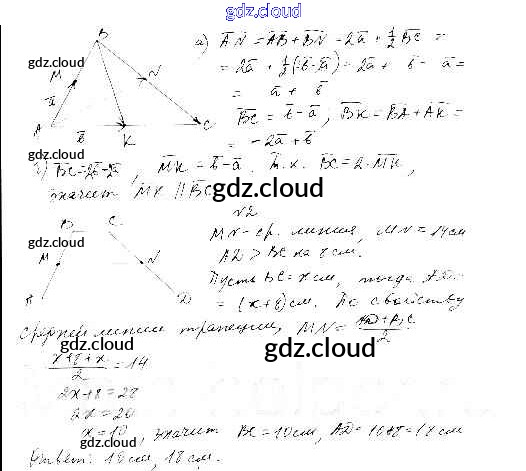 gdz.cloud
а) AN = AB + BN = 2a + 1/2 BC =
= 2a + 1/2(2b - 2a) = 2a + b - a =
= a + b
BC = b - a; BK = BA + AK =
= -2a + b
B
gdz.cloud
M
N
a
A
b
K
C
gdz.cloud
BC = 2b - 2a, MK = b - a. Т.к. BC = 2·MK,
значит MK || BC
gdz.cloud
№2
B C
gdz.cloud
M
N
A
D
gdz.cloud
MN - ср. линия, MN = 14см
AD > BC на 8см.
Пусть BC = x см, тогда AD =
= (x+8) см. По свойству
средней линии трапеции, MN = (AD + BC)/2
gdz.cloud
(x+8+x)/2 = 14
2x+8 = 28
2x = 20
x = 10, значит BC = 10см, AD = 10+8 = 18 см
gdz.cloud
Ответ: 10 см, 18 см.